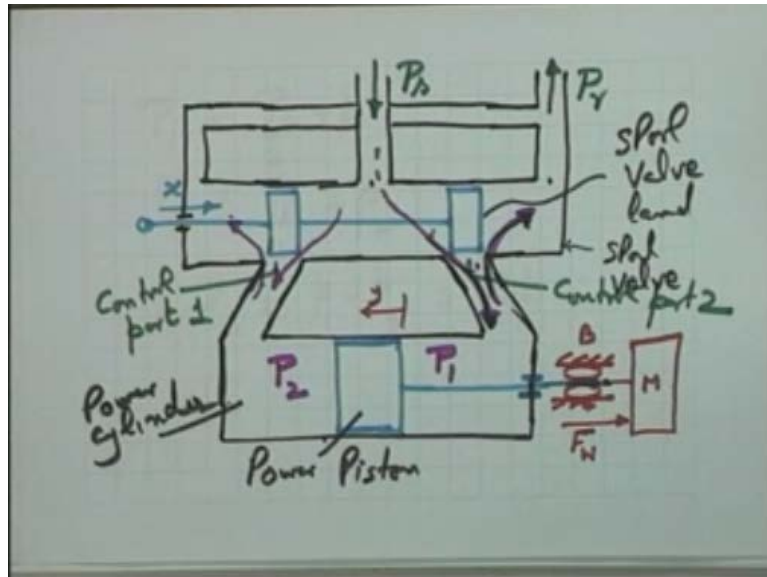 Ps
Pr
spool
valve
land
x
spool
valve
Control
port 1
Control port 2
y
P2
P1
B
M
Power
cylinder
FN
Power Piston